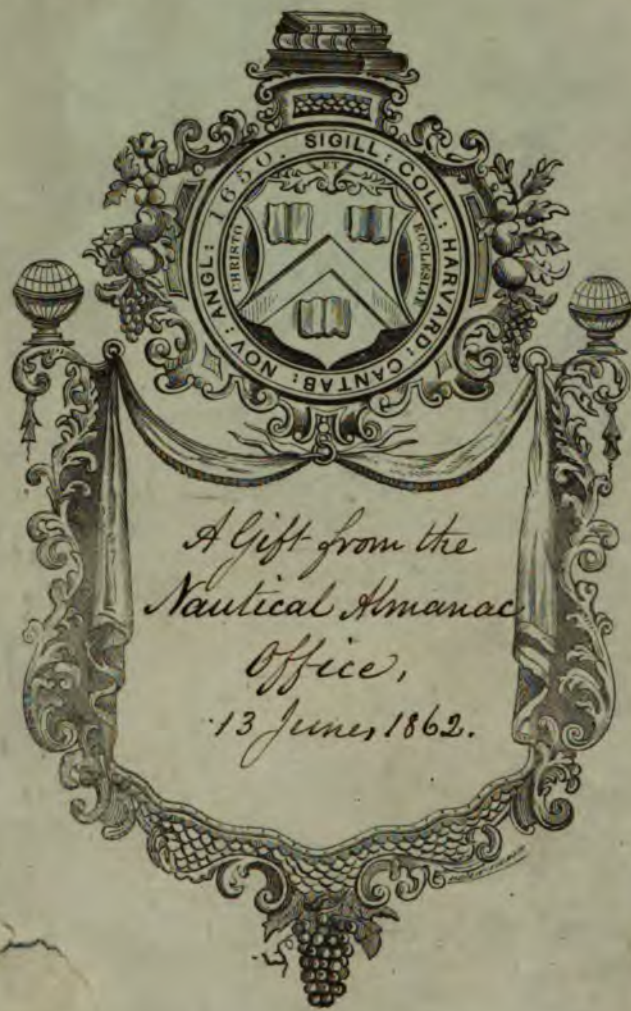 SIGILL: COLL: HARVARD: CANTAB: NOV: ANGL: 1650.
ET
CHRISTO
ECCLESIAE
A Gift from the
Nautical Almanac
Office,
13 June, 1862.